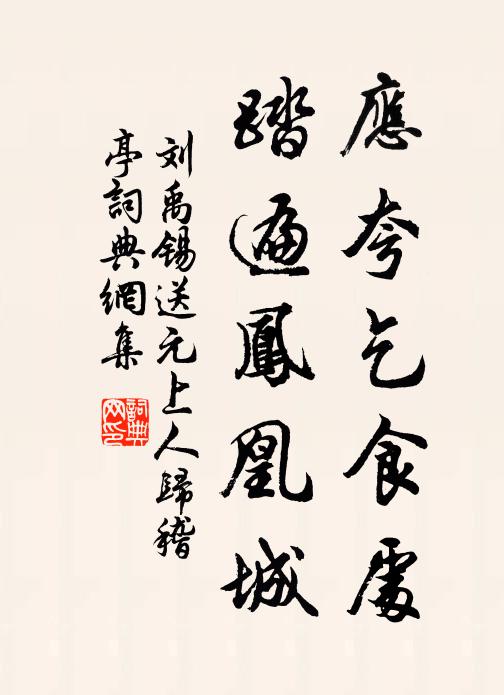 應夸乞食處
踏遍鳳凰城
刘禹锡送元上人歸稽
亭詞典網集
詞典
网印